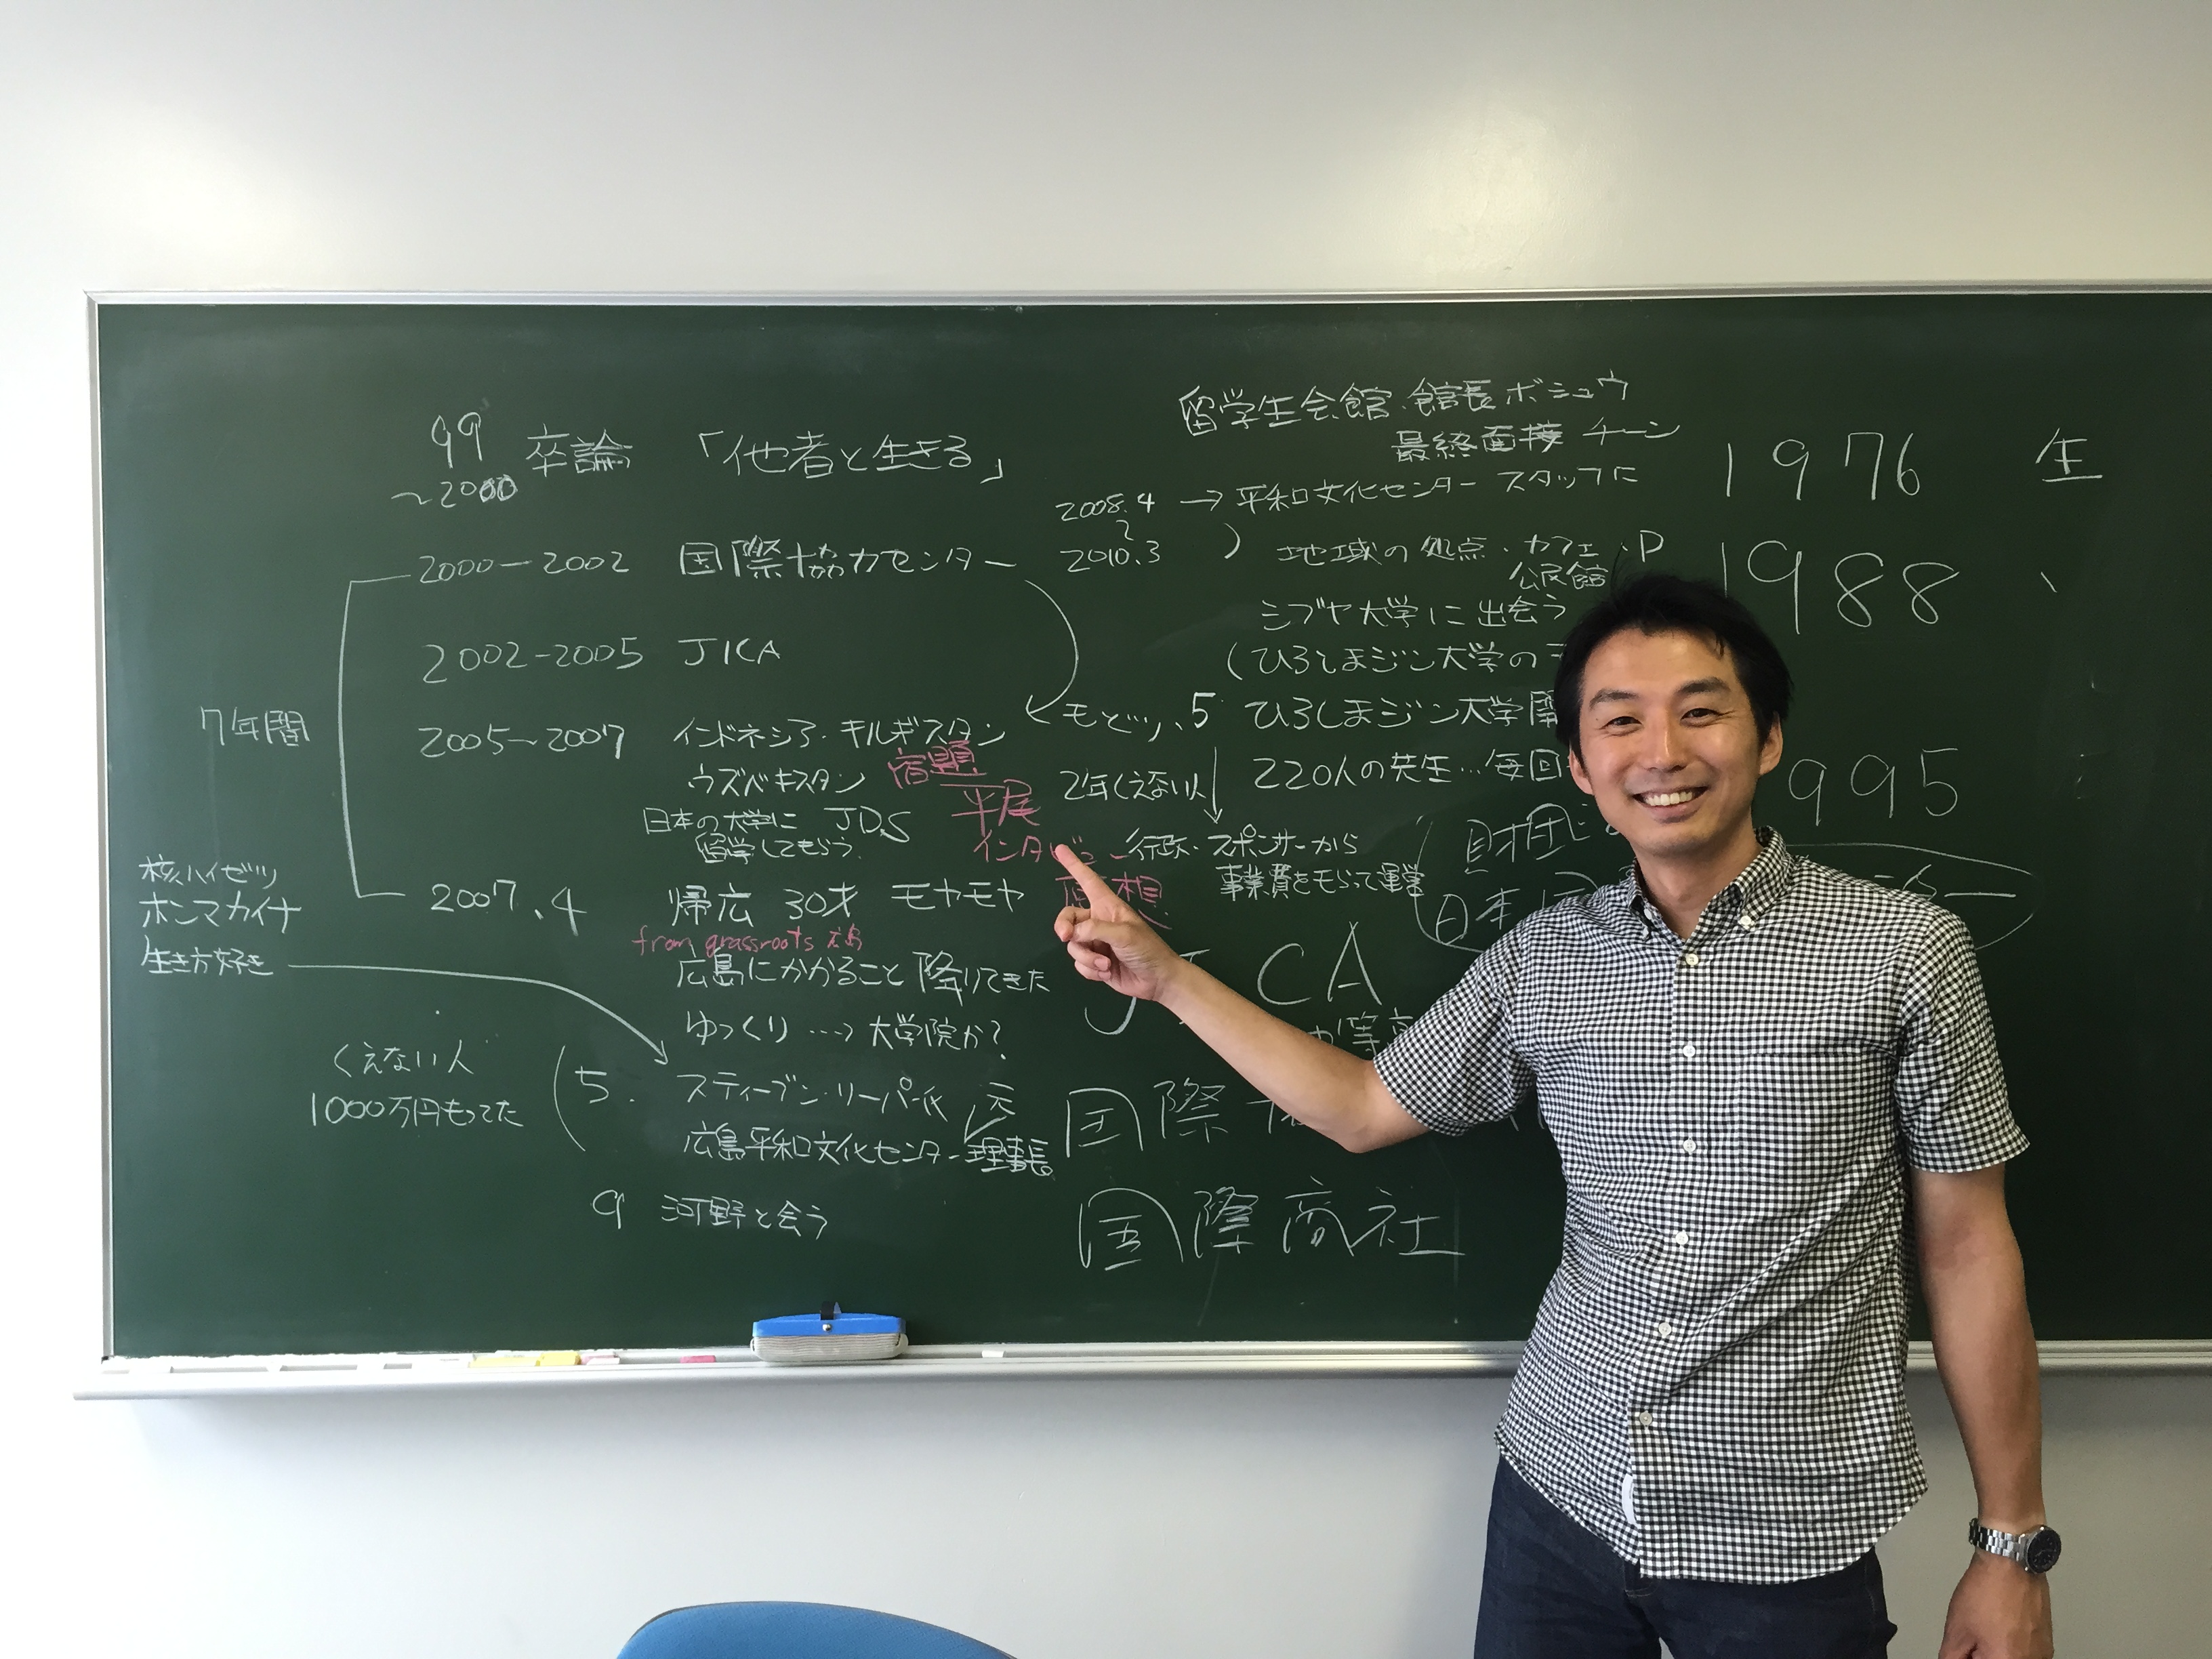 99 卒論 「他者と生きる」
～2000
2000－2002 国際協力センター
2002-2005 JICA
7年間
2005～2007 インドネシア・キルギスタン
ウズベキスタン
宿題
日本の大学に JDS
留学してもらう
平尾
インタビュー
感想
核ハイゼツ
ホンマカイナ
生き方好き
2007.4 帰広 30才 モヤモヤ
from grassroots 広島
広島にかかること 降りてきた
ゆっくり …→ 大学院か?
くえない人
1000万円もってた
5. スティーブン・リーパー氏 元
広島平和文化センター理事長
9 河野と会う
留学生会館・館長ボシュウ
最終面接 チーン
2008.4 → 平和文化センター スタッフに
～
2010.3
地域の 処点・カフェ・P
公民館
シブヤ大学に出会う
(ひろしまジン大学の
もどり、5 ひろしまジン大学開
2年くえない人
220人の先生…毎回
行政・スポンサーから
事業費をもらって運営
財団に
日本
JICA
等高
国際
国際商社
1976 生
1988
995